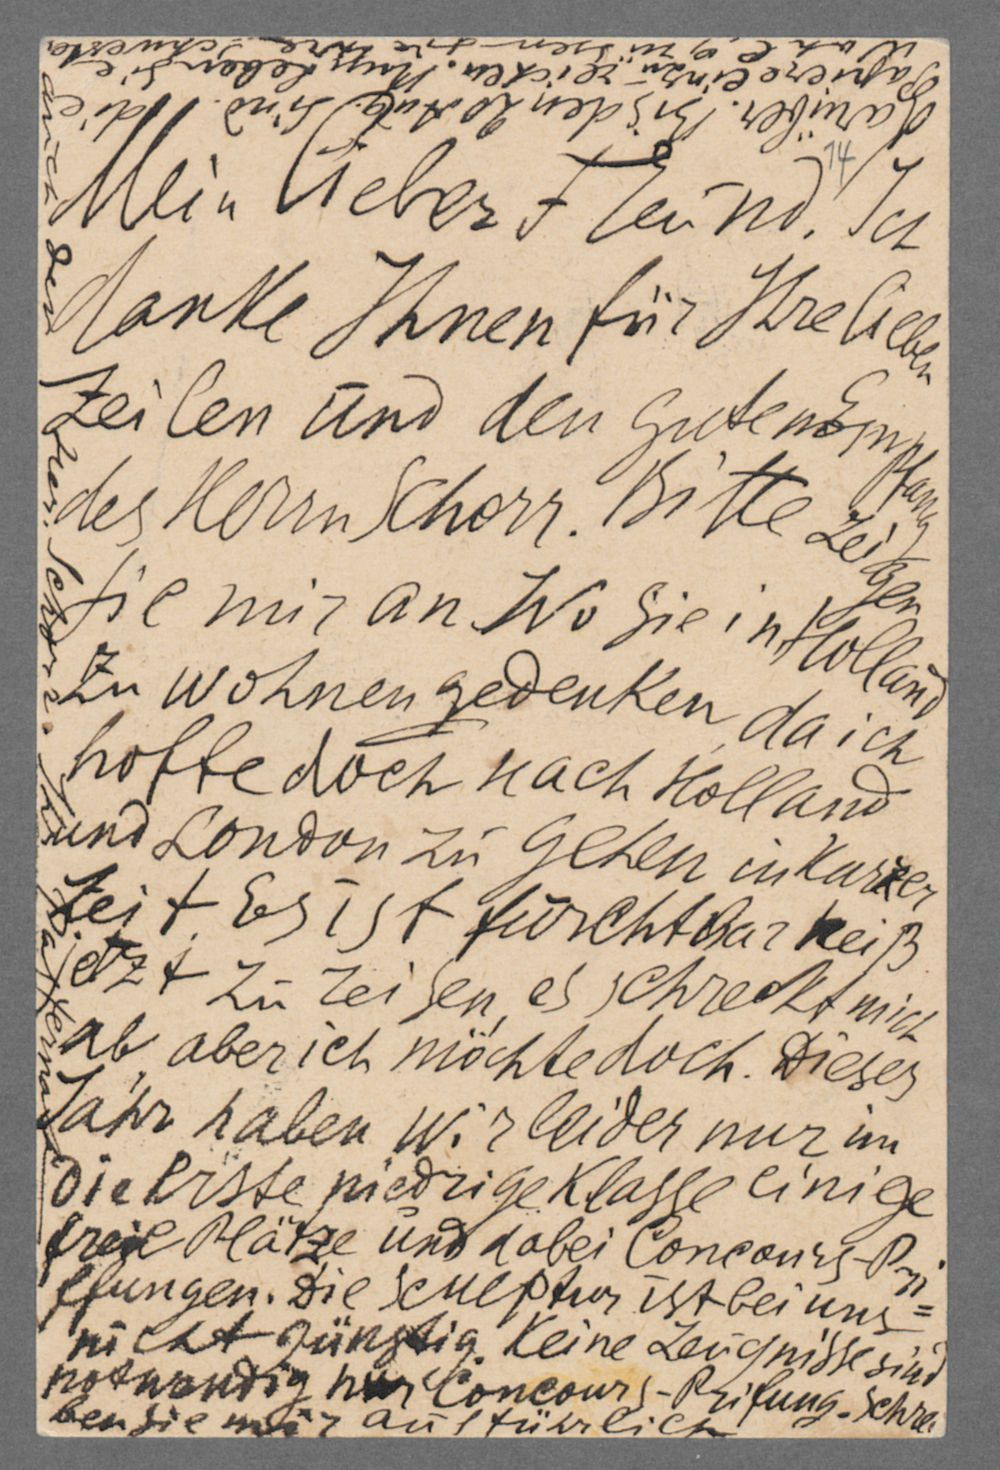 Mein lieber Freund! Ich
danke Ihnen für Ihre lieben
Zeilen und den guten Empfang
des Herrn Schorr. Bitte zeigen
Sie mir an Wo Sie in Holland
zu wohnen gedenken, da ich
hoffe doch nach Holland
und London zu gehen in kurzer
Zeit. Es ist furchtbar heiß
jetzt zu reisen, es schreckt mich
ab, aber ich möchte doch. Dieses
Jahr haben wir leider nur in
die Erste niedrige Klasse einige
freie Plätze und dabei Concours-Prü
fungen. Die Sculptur ist bei uns
nicht günstig. Keine Zeugnisse sind
notwendig nur Concours-Prüfung. Schrei
ben Sie mir ausführlich
darüber. Bis den 20 Aug. sind die
Papiere einzureichen. Nun leben Sie
wohl, grüßen Sie Ihre Schwester
auch den
Herrn Schorr. Ihr